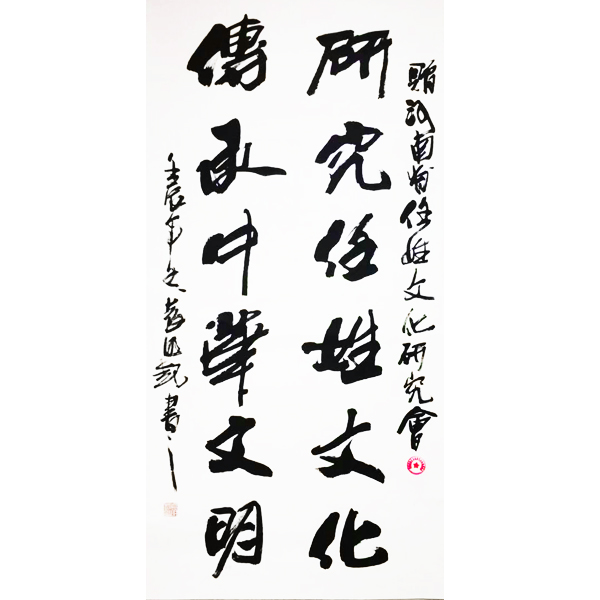 贈河南省任姓文化研究會
研究任姓文化
傳承中華文明
壬辰年冬
書